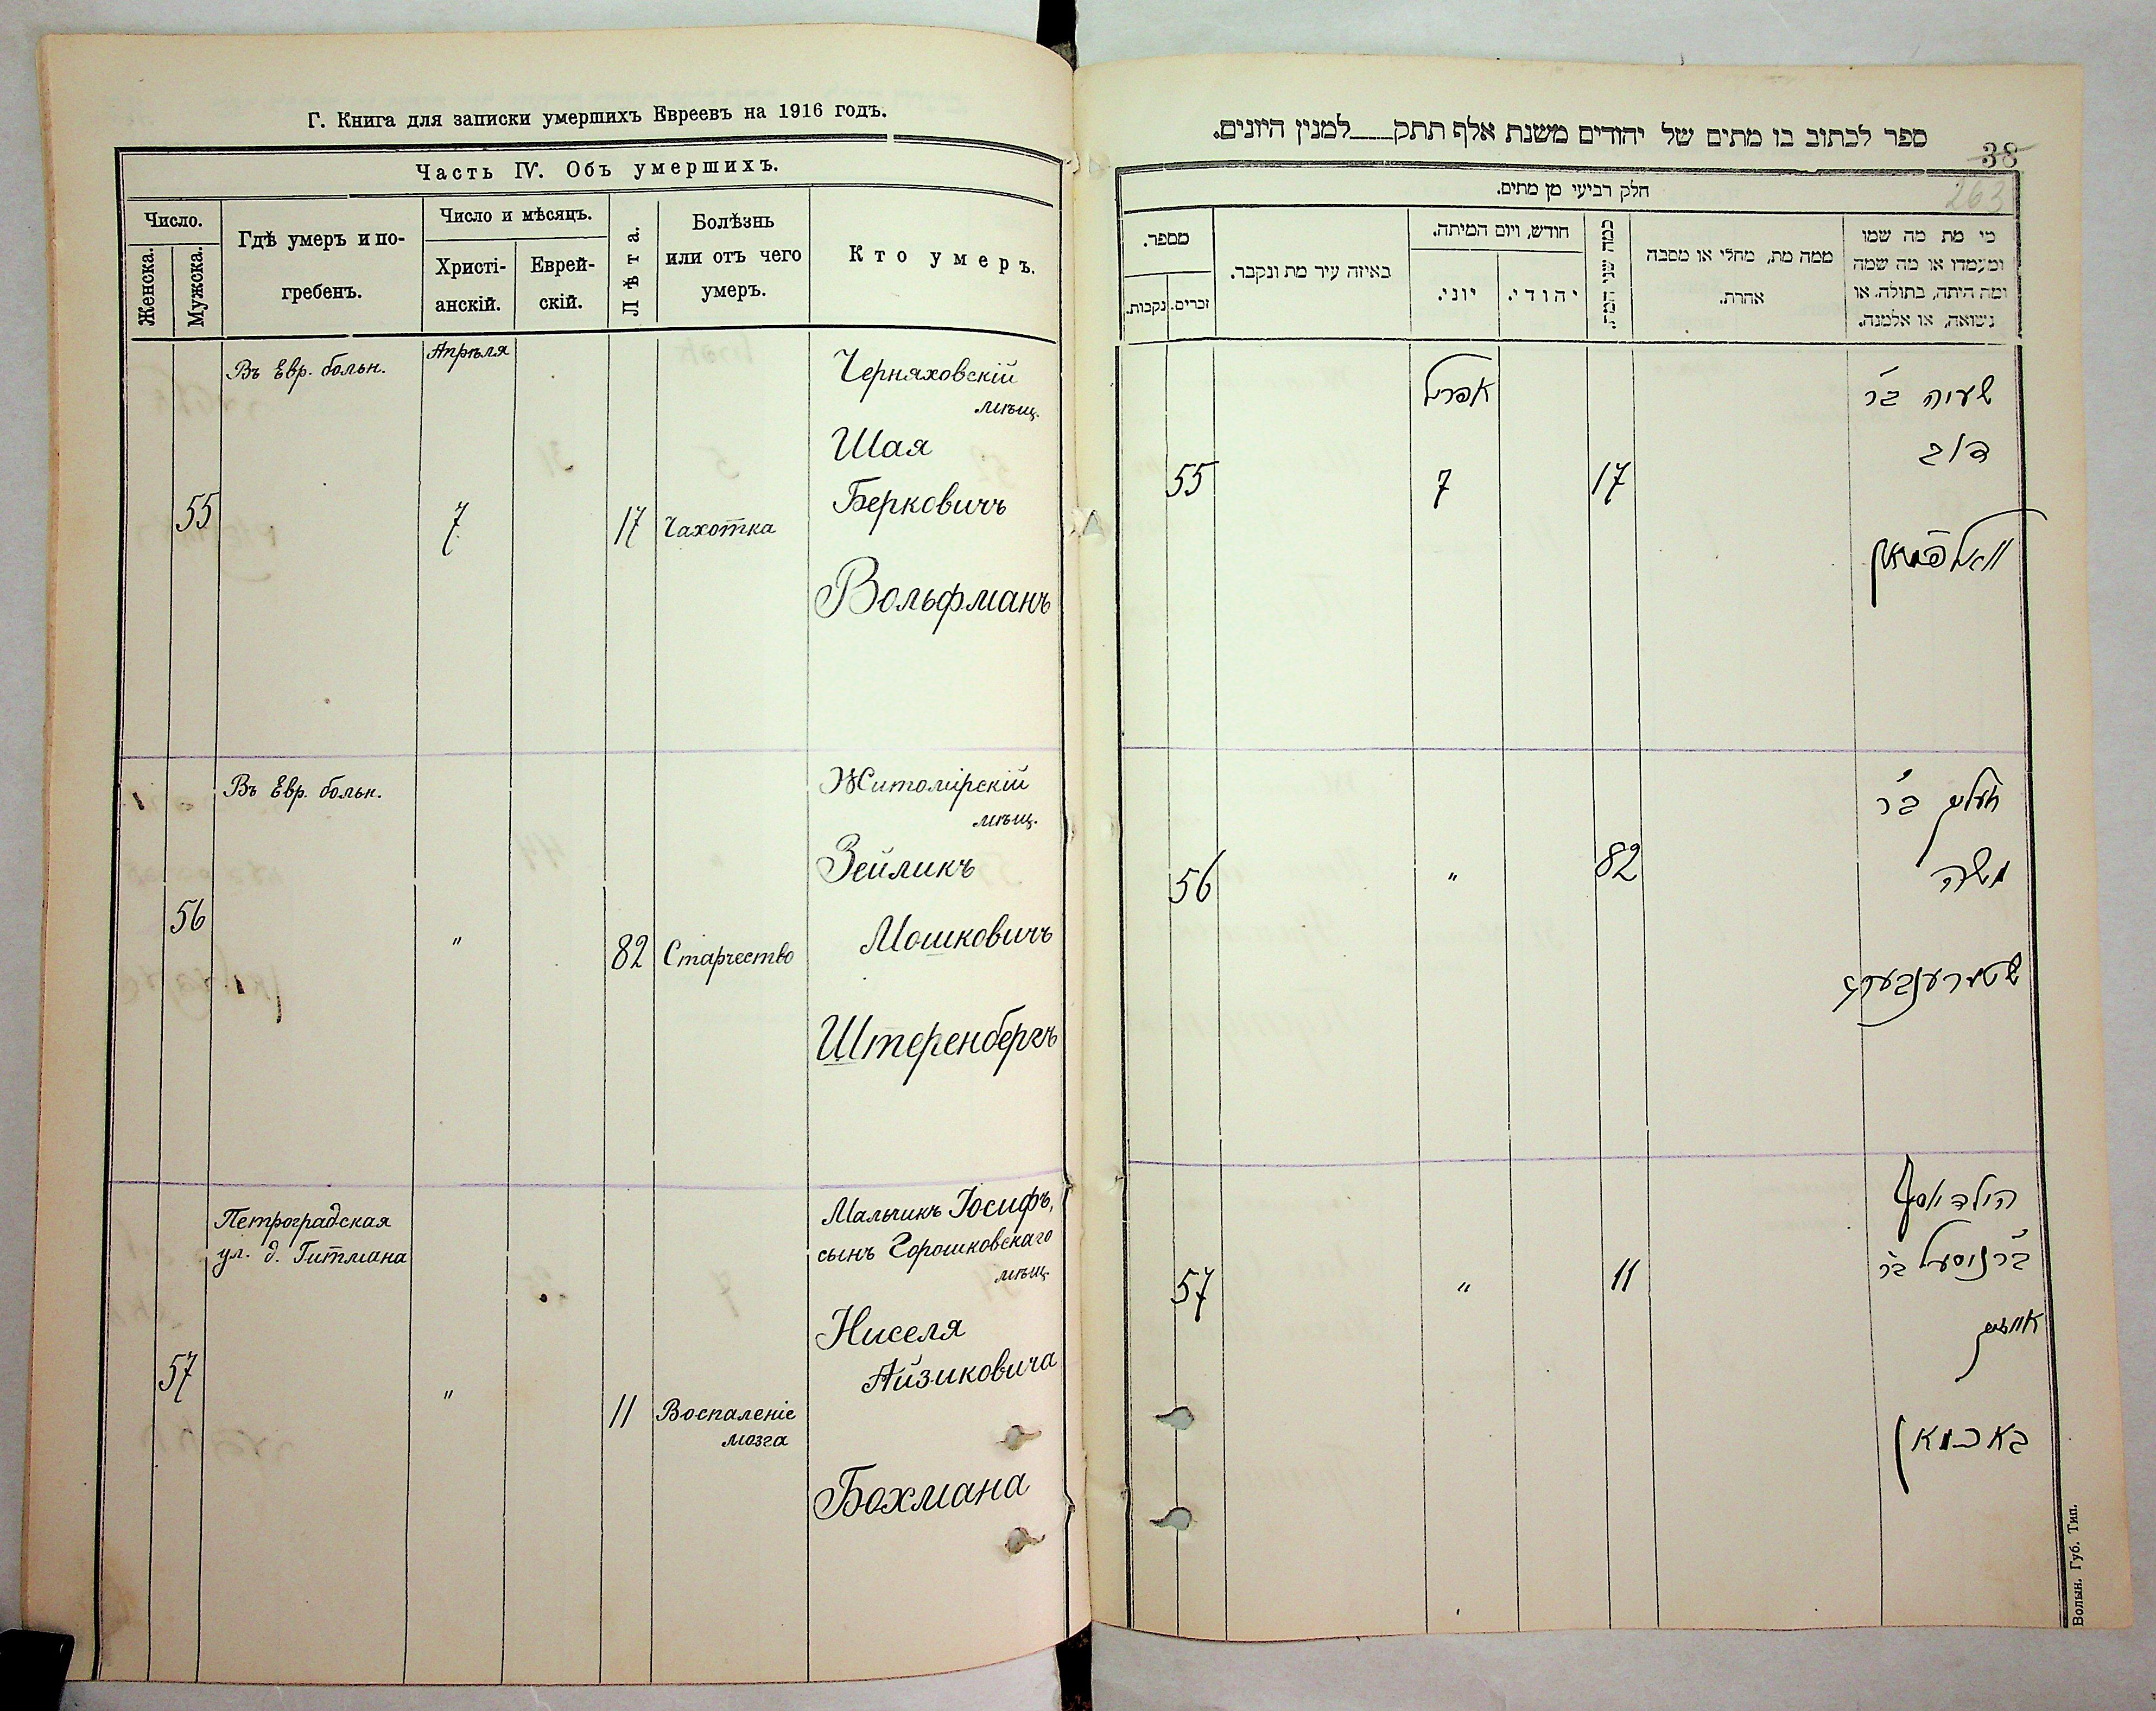 Г. Книга для записки умершихъ Евреевъ на 1916 годъ.
Часть IV. Объ умершихъ.
Число.
Женска.
Мужска.
Гдѣ умеръ и по-
гребенъ.
Число и мѣсяцъ.
Христі-
анскій.
Еврей-
скій.
Лѣта.
Болѣзнь
или отъ чего
умеръ.
Кто умеръ.
Въ Евр. больн.
Апрѣля
Черняховскій
мѣщ.
Шая
Берковичъ
55
7
17
Чахотка
Вольфманъ
Въ Евр. больн.
Житомірскій
мѣщ.
Зейликъ
Мошковичъ
56
"
82
Старчество
Штеренбергъ
Петроградская
ул. д. Гитмана
Мальчикъ Іосифъ,
сынъ Горошковскаго
мѣщ.
Ниселя
Айзиковича
57
"
11
Воспаленіе
мозга
Бохмана
ספר לכתוב בו מתים של יהודים משנת אלף תתק___למנין היונים.
38
263
חלק רביעי מן מתים.
מספר.
זכרים.
נקבות.
באיזה עיר מת ונקבר.
חודש, ויום המיתה.
יוני.
יהודי.
כמה שני המת.
ממה מת, מחלי או מסבה
אחרת.
כי מת מה שמו
ומעמדו או מה שמה
ומה היתה, בתולה, או
נשואה, או אלמנה.
אפריל
שעיה ב״ר
דוב
55
7
17
וואלפמאן
ב״ר
משה
56
"
82
שטערענבערג
הילד יוסף
ב״ר ניסעל ב״ר
אייזיק
57
"
11
באכמאן
Волын. Губ. Тип.